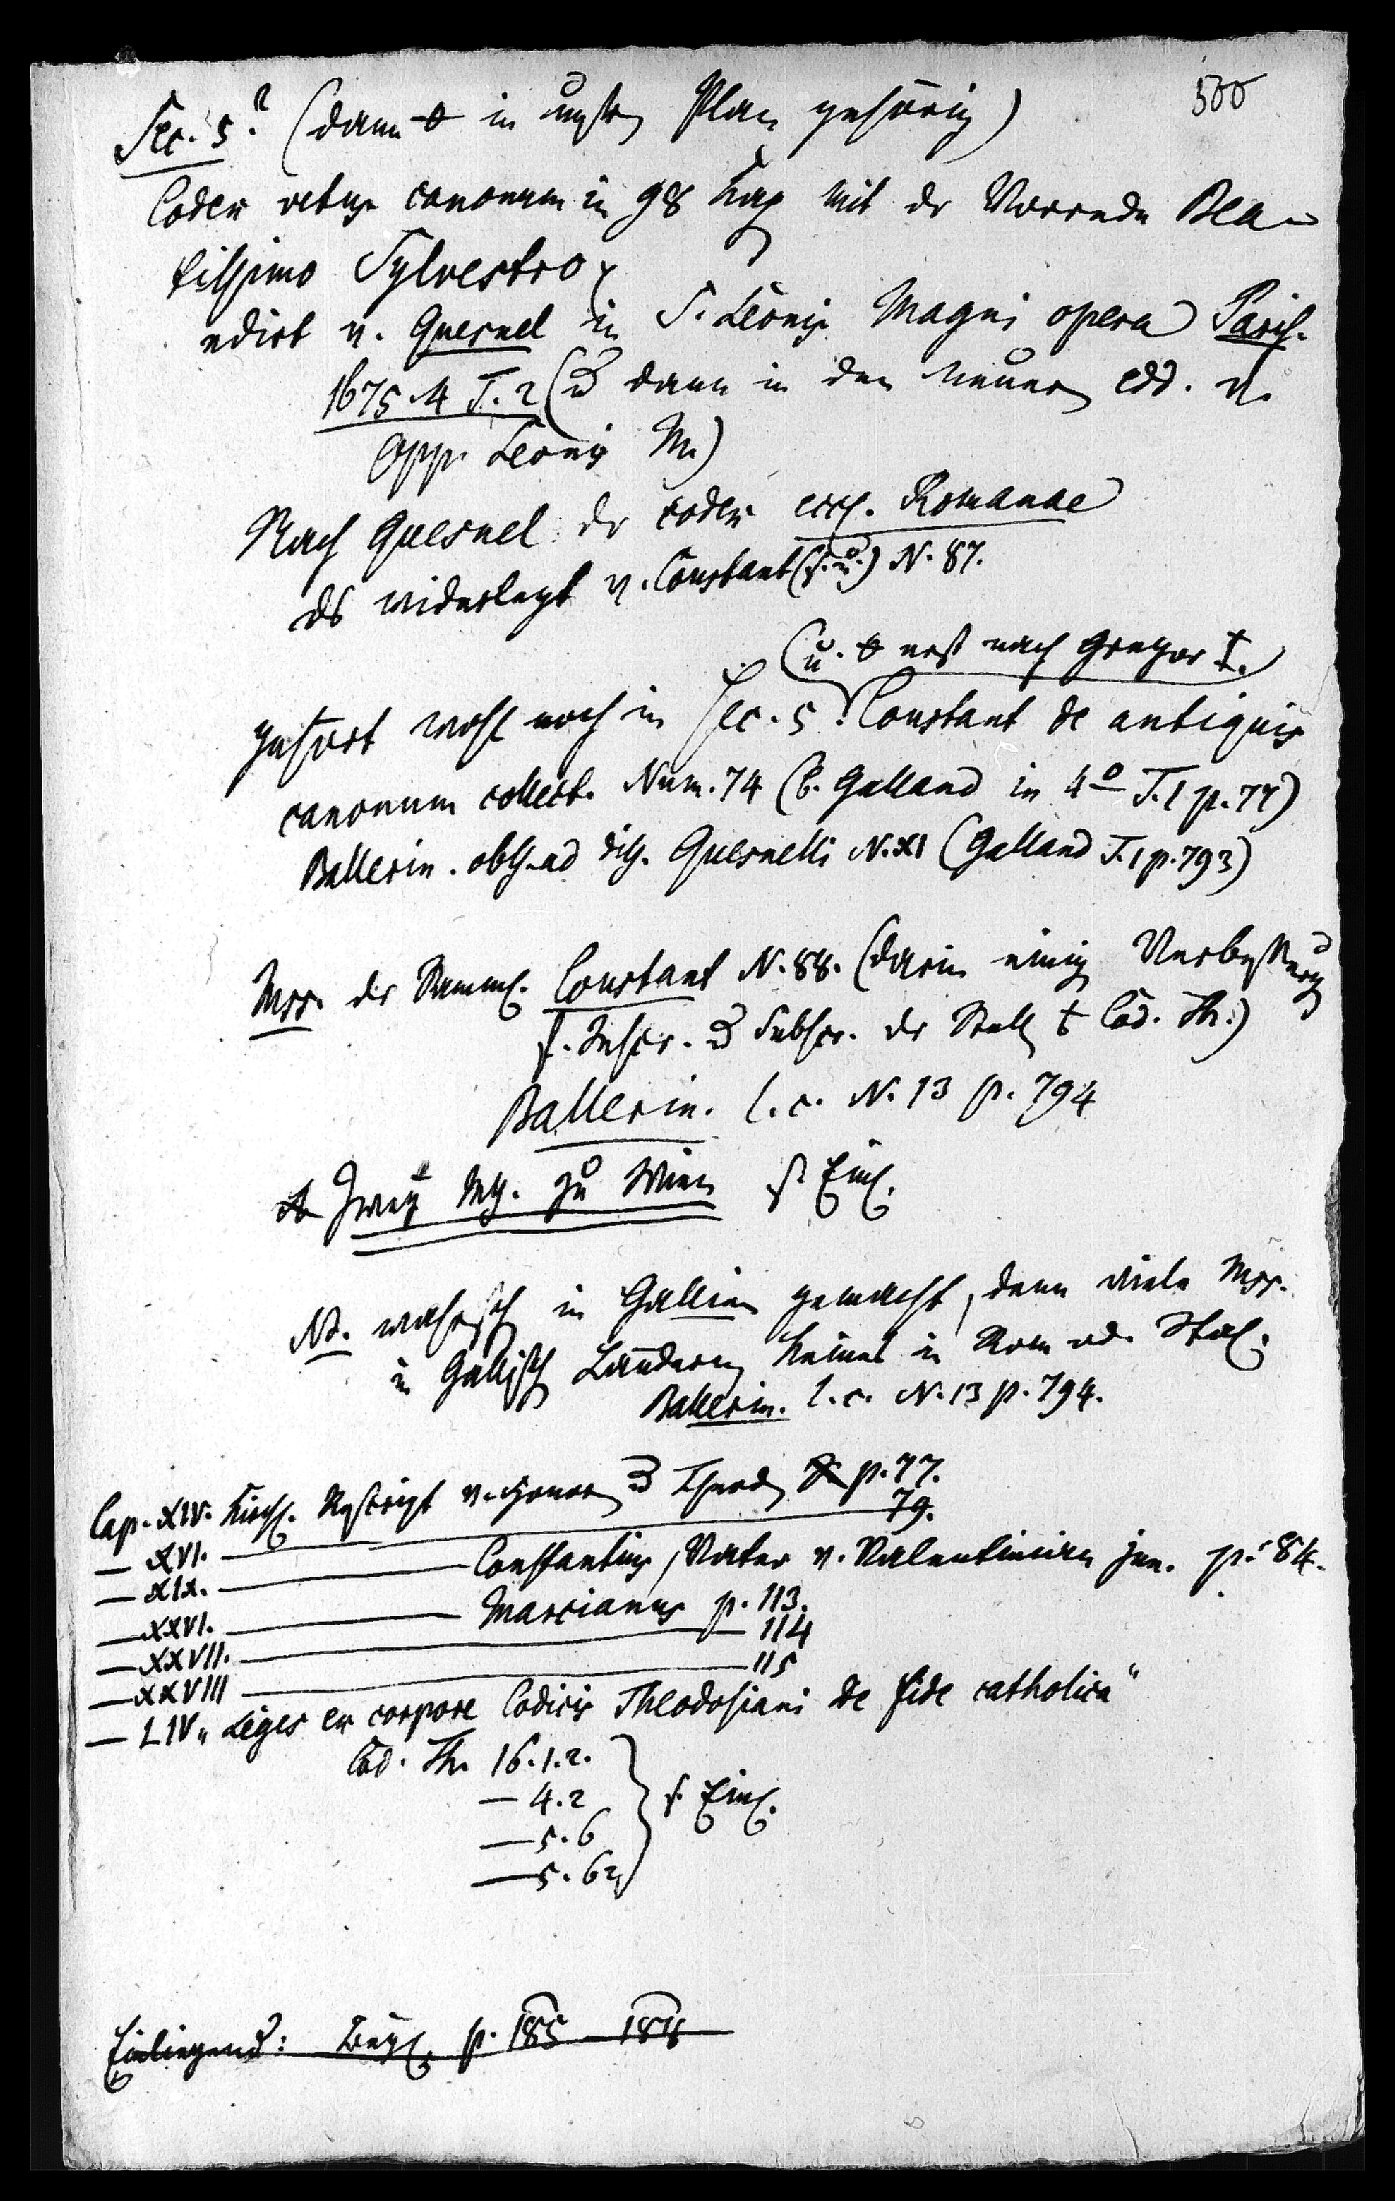 500
Sec. 5? (dann in unsern Plan gehörig)
Codex vetus canonum in 98 Kap mit der Vorrede Bea-
tissimo Sylvestro
edirt v. Quesnel in S. Leonis Magni opera Paris.
1675. 4 T. 2 (u dann in den neuern edd. v.
Opp. Leonis M.)
Nach Quesnel der codex eccl. Romanae
ds widerlegt v. Constant (s. u.) N. 87.
(u. erst nach Gregor I.)
gehört wohl noch in Sec. 5. Constant de antiquis
canonum collect. Num. 74 (b. Galland in 4o T. 1 p. 77)
Ballerin. obss. ad diss. Quesnelli N. XI (Galland T. 1 p. 793)
Mss. der Samml. Constant N. 88. (darin einige Verbesserung
f. Inscr. u Subscr. der Stelle Cod. Th.)
Ballerin. l. c. N. 13 p. 794
Zwey Mss. zu Wien s. Einl.
NB. wahrsch in Gallien gemacht, denn viele Mss.
in Gallisch Ländern, keines in Rom od. Ital.
Ballerin. l. c. N. 13 p. 794.
Cap. XIV. Kirchl. Rescript v. Honor u Theod p. 77.
— XVI. — 79.
— XIX. — Constantius, Vater v. Valentinian jun. p. 84.
— XXVI. — Marcianus p. 113.
— XXVII. — 114
— XXVIII — 115
— LIV „Leges ex corpore Codicis Theodosiani de fide catholica“
Cod. Th. 16. 1. 2.
— 4. 2
— 5. 6
— 5. 62
s. Einl.
Einliegend: p. 185 – 188